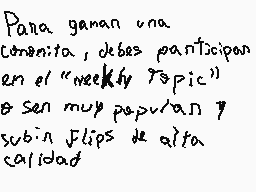 Para ganar una
coronita, debes participar
en el "weekly Topic"
o ser muy popular y
subir flips de alta
calidad